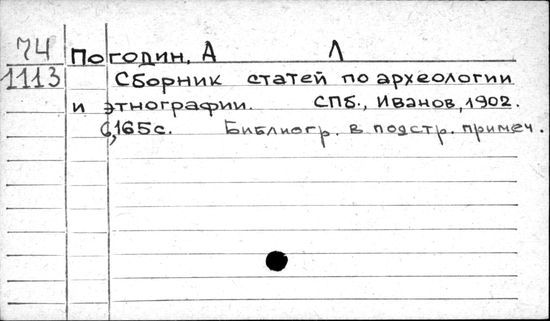 74 Погодин, А Л
1113 Сборник статей по археологии
и этнографии. СПб., Иванов, 1902.
6,165с. Библиогр. в подстр. примеч.